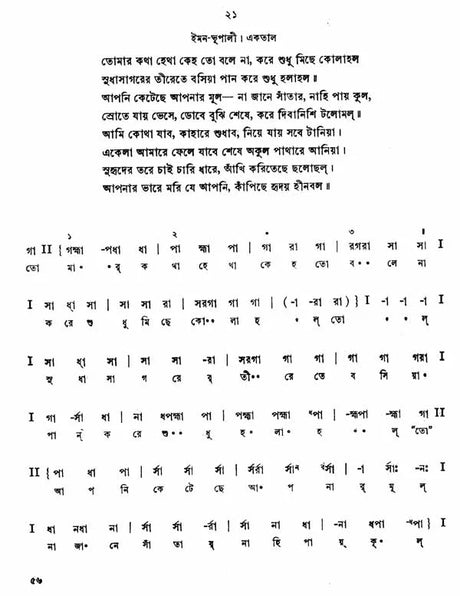 ২১
ইমন-ভূপালী। একতাল
তোমার কথা হেথা কেহ তো বলে না, করে শুধু মিছে কোলাহল
সুধাসাগরের তীরেতে বসিয়া পান করে শুধু হলাহল॥
আপনি কেটেছে আপনার মূল— না জানে সাঁতার, নাহি পায় কূল,
স্রোতে যায় ভেসে, ডোবে বুঝি শেষে, করে দিবানিশি টলোমল্॥
আমি কোথা যাব, কাহারে শুধাব, নিয়ে যায় সবে টানিয়া।
একেলা আমারে ফেলে যাবে শেষে অকূল পাথারে আনিয়া।
সুহৃদের তরে চাই চারি ধারে, আঁখি করিতেছে ছলোছল্।
আপনার ভারে মরি যে আপনি, কাঁপিছে হৃদয় হীনবল॥
১ ২ ৩
গা II { গহ্মা -পধা ধা | পা হ্মা পা | গা রা গা | রগরা সা সা I
তো মা • র্ ক থা হে থা কে হ তো ব •• লে না
I সা ধ্সা সা | সা সা রা | সরগা গা গা | ( -া -রা রা ) } I -া -া -া I
ক রে শু ধু মি ছে কো •• লা হ • ল্ তো • • ল্
I সা ধ্ সা | সা সা -রা | সরগা গা গা | গা গা গরা I
সু ধা সা গ রে র্ তী •• রে তে ব সি য়া •
I গা -র্সা ধা | না ধপহ্মা পা | পহ্মা পহ্মা পা | -হ্মপা -হ্মা গা II
পা ন্ ক রে শু •• ধু হ • লা • হ •• ল্ "তো"
II { পা ধা পা | র্সা র্সা র্সা | র্সর্রা র্সা র্সা | -া র্সাঃ -নঃ I
আ প নি কে টে ছে আ • প না র্ মূ ল্
I ধা নধা না | র্সা র্সা -র্রা | র্সা না র্সা | ধা -না ধপা -পা } I
না জা • নে সাঁ তা র্ না হি পা য়্ কূ • ল্
৫৬